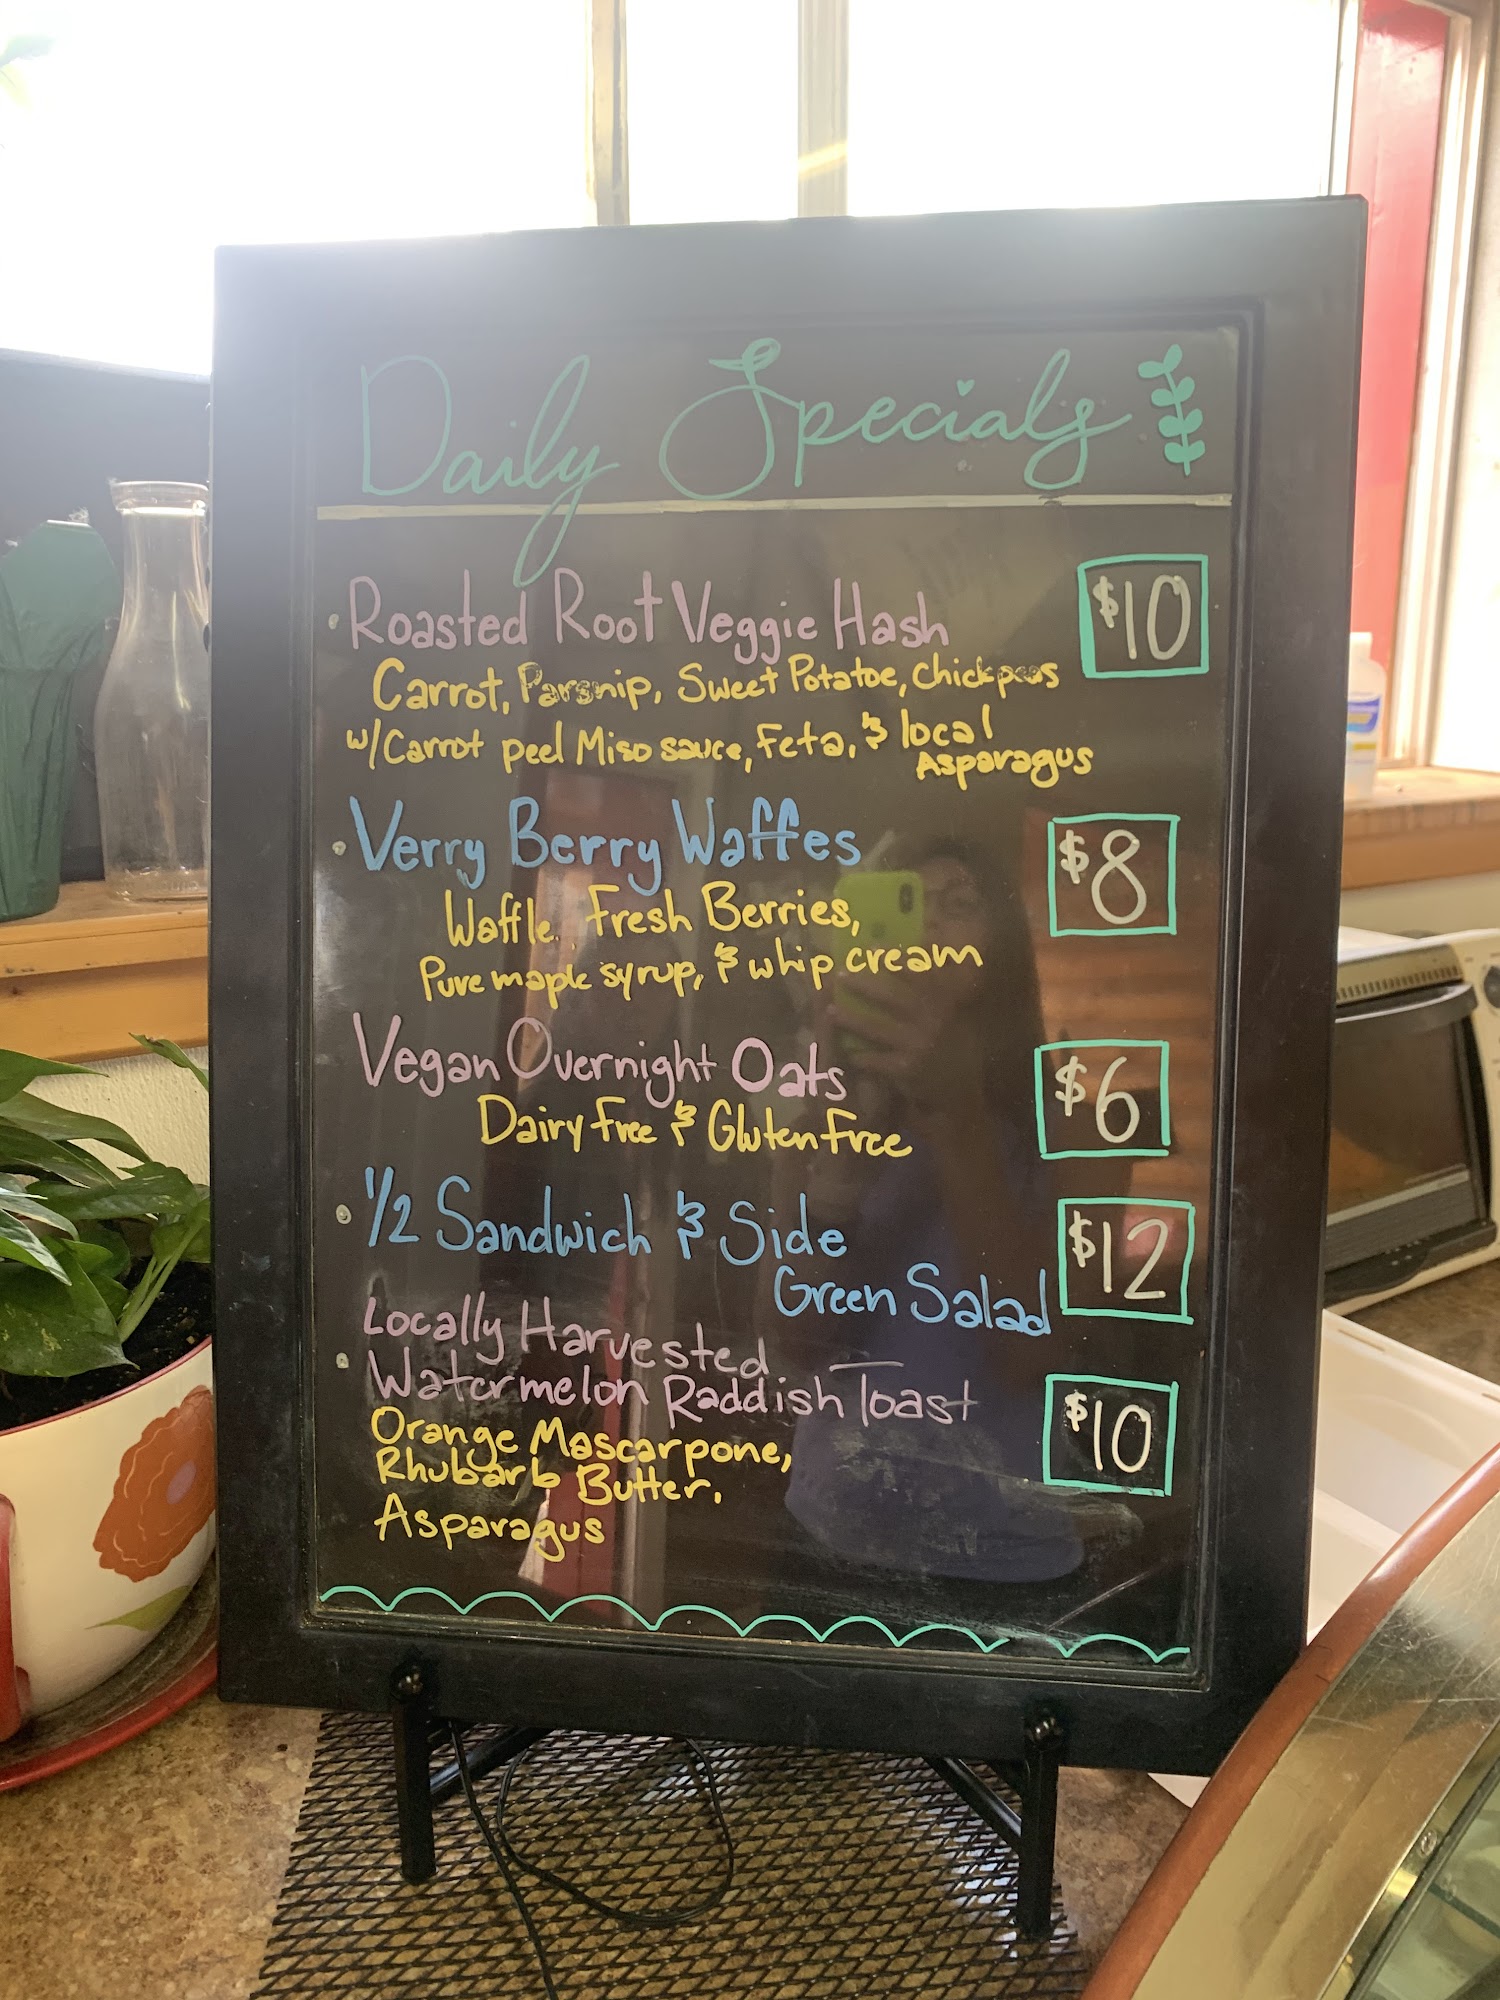 Daily Specials
Roasted Root Veggie Hash $10
Carrot, Parsnip, Sweet Potatoe, Chickpeas
w/Carrot peel Miso sauce, Feta, & local
Asparagus
Verry Berry Waffes $8
Waffle, Fresh Berries,
Pure maple syrup, & whip cream
Vegan Overnight Oats $6
Dairy Free & Gluten Free
1/2 Sandwich & Side $12
Green Salad
Locally Harvested
Watermelon Raddish Toast $10
Orange Mascarpone,
Rhubarb Butter,
Asparagus